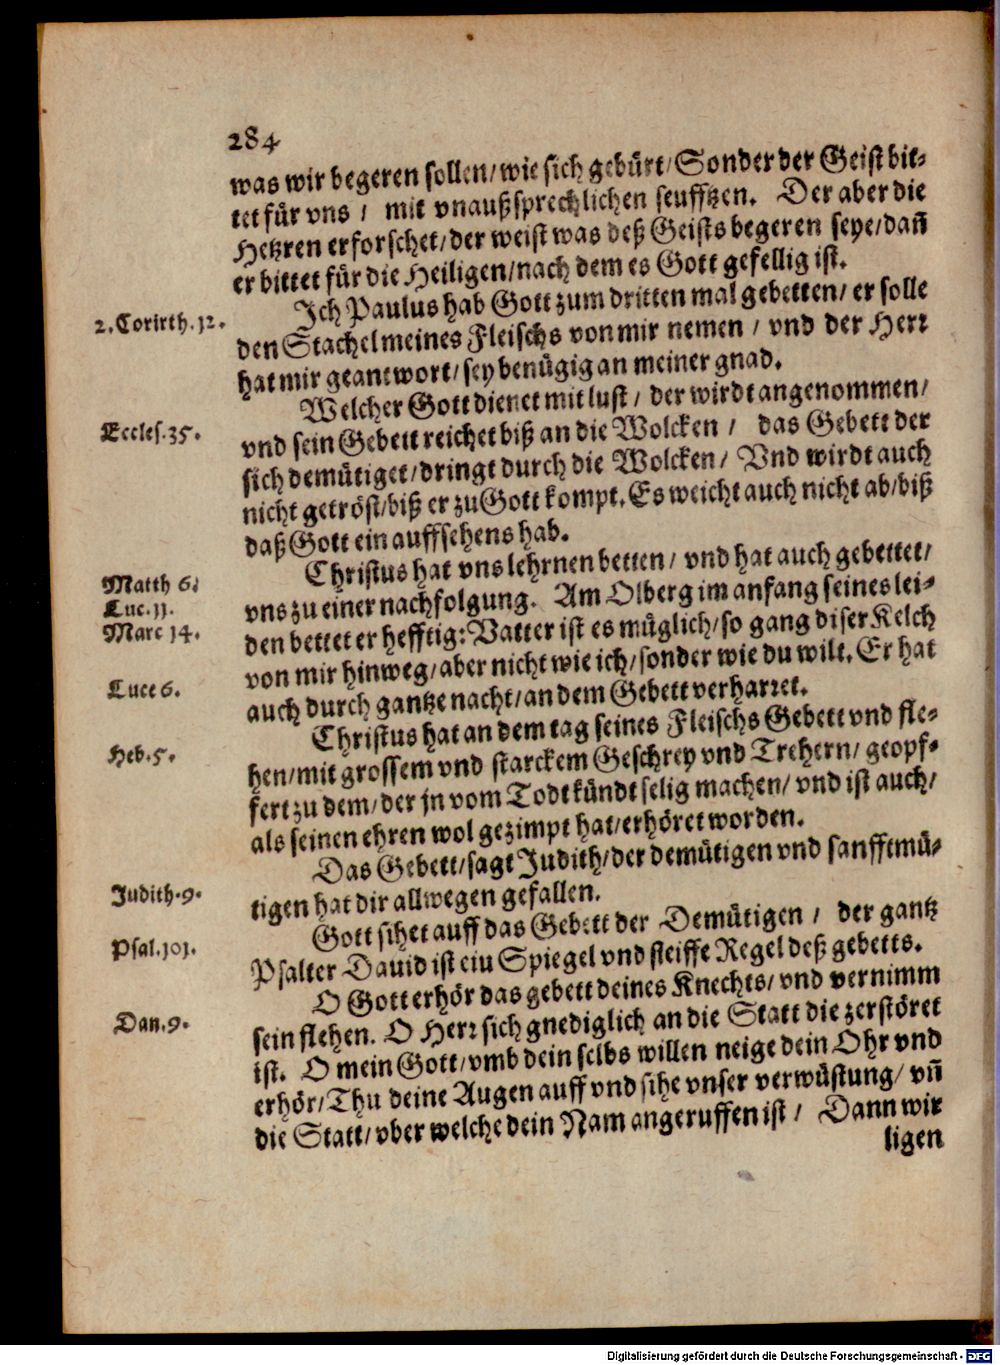 284
was wir begeren sollen/ wie sich gebürt/ Sonder der Geist bit-
tet für vns / mit vnaußsprechlichen seufftzen. Der aber die
Hetzren erforschet/ der weist was deß Geists begeren seye/ dañ
er bittet für die Heiligen/ nach dem es Gott gefellig ist.
Ich Paulus hab Gott zum dritten mal gebetten/ er solle
2. Corirth. 12.
den Stachel meines Fleischs von mir nemen / vnd der Herr
hat mir geantwort/ sey benügig an meiner gnad.
Welcher Gott dienet mit lust / der wirdt angenommen/
Eccles. 35.
vnd sein Gebett reichet biß an die Wolcken / das Gebett der
sich demütiget/ dringt durch die Wolcken/ Vnd wirdt auch
nicht getröst/ biß er zu Gott kompt. Es weicht auch nicht ab/ biß
daß Gott ein auffsehens hab.
Christus hat vns lehrnen betten/ vnd hat auch gebettet/
Matth 6.
Luc. 11.
vns zu einer nachfolgung. Am Olberg im anfang seines lei-
Marc 14.
den bettet er hefftig: Vatter ist es müglich/ so gang diser Kelch
von mir hinweg/ aber nicht wie ich/ sonder wie du wilt. Er hat
Luce 6.
auch durch gantze nacht/ an dem Gebett verharret.
Christus hat an dem tag seines Fleischs Gebett vnd fle-
Heb. 5.
hen/ mit grossem vnd starckem Geschrey vnd Trehern/ geopf-
fert zu dem/ der jn vom Todt kündt selig machen/ vnd ist auch/
als seinen ehren wol gezimpt hat/ erhöret worden.
Das Gebett/ sagt Judith/ der demütigen vnd sanfftmü-
Judith. 9.
tigen hat dir allwegen gefallen.
Gott sihet auff das Gebett der Demütigen / der gantz
Psal. 101.
Psalter Dauid ist eiu Spiegel vnd steiffe Regel deß gebetts.
O Gott erhör das gebett deines Knechts/ vnd vernimm
Dan. 9.
sein flehen. O Herr sich gnediglich an die Statt die zerstöret
ist. O mein Gott/ vmb dein selbs willen neige dein Ohr vnd
erhör/ Thu deine Augen auff vnd sihe vnser verwüstung/ vñ
die Statt/ vber welche dein Nam angeruffen ist / Dann wir
ligen
Digitalisierung gefördert durch die Deutsche Forschungsgemeinschaft - DFG